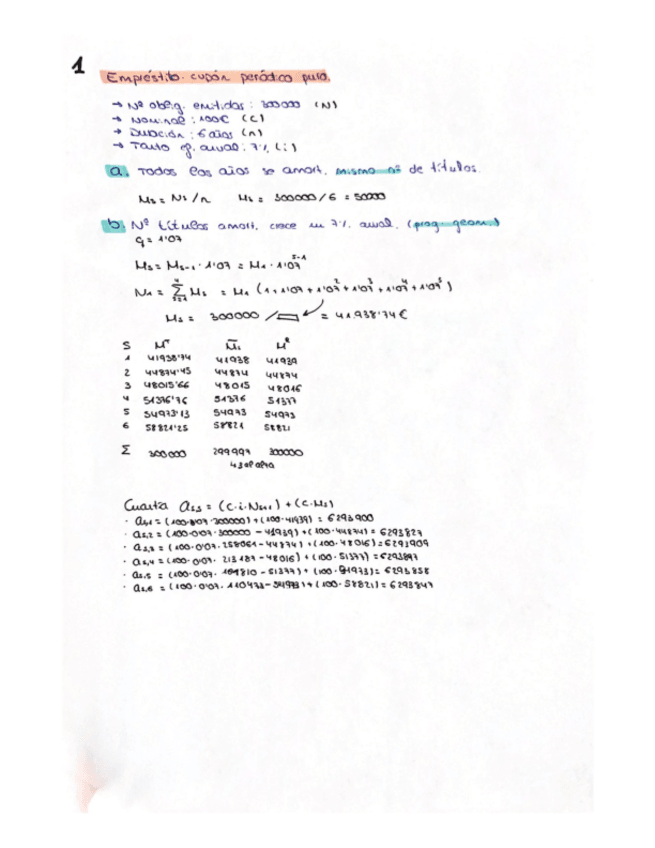 1
Empréstito. cupón periódico puro.
→ Nº oblig. emitidas: 300000 (N)
→ Nominal: 100€ (C)
→ Duración: 6 años (n)
→ Tanto ef. anual: 7% (i)
a. Todos los años se amort. mismo nº de títulos.
Ms = N1/n Ms = 300000/6 = 50000
b. Nº títulos amort. crece un 7% anual. (prog. geom.)
q = 1'07
Ms = Ms-1 · 1'07 = M1 · 1'07^s-1
N1 = Σ Ms = M1 (1 + 1'07 + 1'07² + 1'07³ + 1'07⁴ + 1'07⁵)
Ms = 300000 / = 41.938'74€
S Mᵀ M̄s Mᴿ
1 41938'74 41938 41939
2 44874'45 44874 44874
3 48015'66 48015 48016
4 51376'76 51376 51377
5 54973'13 54973 54973
6 58821'25 58821 58821
Σ 300000 299997 300000
as,s = (C·i·Ns+1) + (C·Ms)
· as,1 = (100·0'07·300000) + (100·41939) = 6293900
· as,2 = (100·0'07·300000 - 41939) + (100·44874) = 6293827
· as,3 = (100·0'07·258061 - 44874) + (100·48016) = 6293909
· as,4 = (100·0'07· 213187 - 48016) + (100·51377) = 6293897
· as,5 = (100·0'07· - 51377) + (100· ) = 6293858
· as,6 = (100·0'07· - 54973) + (100·58821) = 6293847